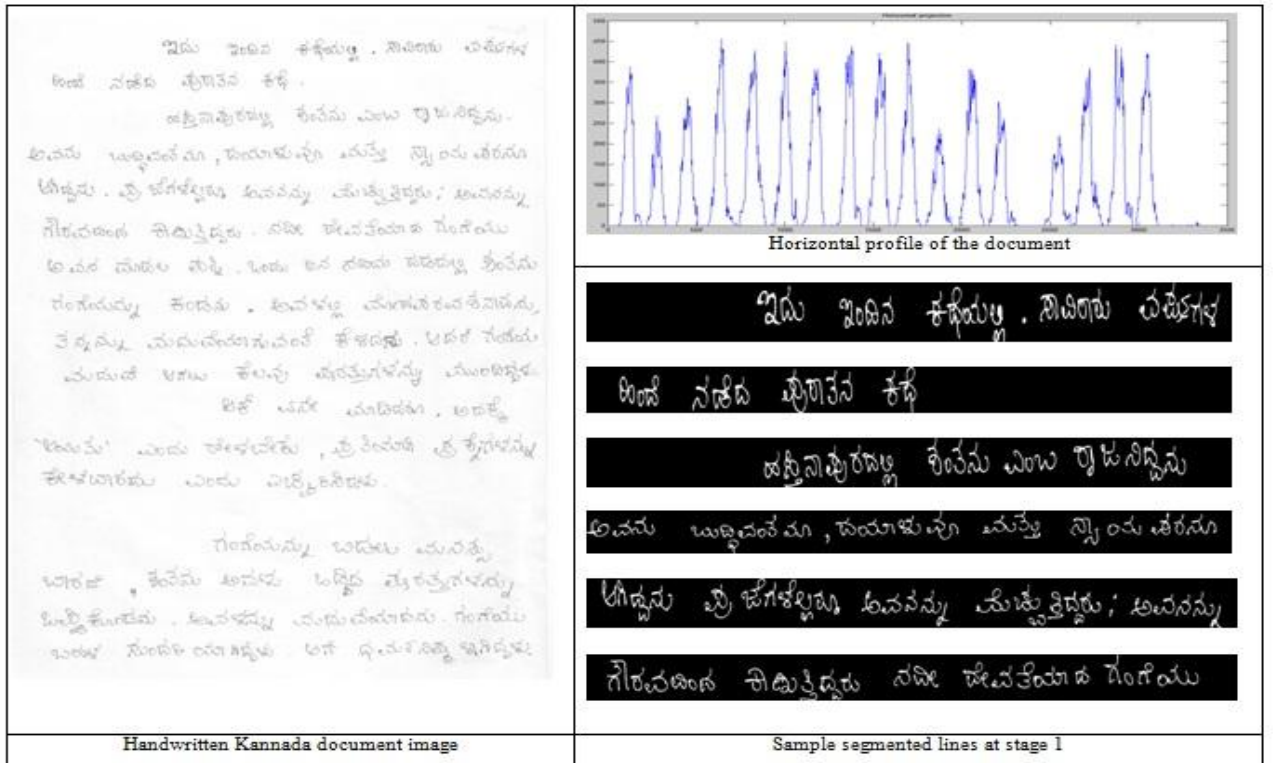 ಇದು ಇಂದಿನ ಕಥೆಯಲ್ಲ. ಸಾವಿರಾರು ವರ್ಷಗಳ
ಹಿಂದೆ ನಡೆದ ಪುರಾತನ ಕಥೆ.
ಹಸ್ತಿನಾಪುರದಲ್ಲಿ ಶಂತನು ಎಂಬ ರಾಜನಿದ್ದನು.
ಅವನು ಬುದ್ಧಿವಂತನೂ, ದಯಾಳುವೂ ಮತ್ತು ನ್ಯಾಯಪರನೂ
ಆಗಿದ್ದನು. ಪ್ರಜೆಗಳೆಲ್ಲರೂ ಅವನನ್ನು ಮೆಚ್ಚುತ್ತಿದ್ದರು; ಅವನನ್ನು
ಗೌರವದಿಂದ ಕಾಣುತ್ತಿದ್ದರು. ನದೀ ದೇವತೆಯಾದ ಗಂಗೆಯು
ಅವನ ಮೊದಲ ಪತ್ನಿ. ಒಂದು ದಿನ ನದಿಯ ದಡದಲ್ಲಿ ಶಂತನು
ಗಂಗೆಯನ್ನು ಕಂಡನು. ಅವಳಲ್ಲಿ
ತನ್ನನ್ನು ಮದುವೆಯಾಗುವಂತೆ ಕೇಳಿದನು. ಆದರೆ ಗಂಗೆಯು
ಮದುವೆ ಆಗಲು ಕೆಲವು ಷರತ್ತುಗಳನ್ನು
ಏನೇ ಮಾಡಿದರೂ, ಅದಕ್ಕೆ
ಎಂದು ಹೇಳಬೇಕು, ಪ್ರಶ್ನೆಗಳನ್ನು
ಕೇಳಬಾರದು ಎಂದು ಎಚ್ಚರಿಸಿದಳು.
ಗಂಗೆಯನ್ನು ಬಿಡಲು ಮನಸ್ಸು
ಬಾರದೆ, ಶಂತನು ಅವಳು ಒಡ್ಡಿದ ಷರತ್ತುಗಳನ್ನು
ಒಪ್ಪಿಕೊಂಡನು. ಅವಳನ್ನು ಮದುವೆಯಾದನು. ಗಂಗೆಯು
ಬಹಳ ಸುಂದರಿಯಾಗಿದ್ದಳು. ಆಗಿದ್ದಳು
Handwritten Kannada document image
Horizontal projection
Horizontal profile of the document
ಇದು ಇಂದಿನ ಕಥೆಯಲ್ಲ. ಸಾವಿರಾರು ವರ್ಷಗಳ
ಹಿಂದೆ ನಡೆದ ಪುರಾತನ ಕಥೆ
ಹಸ್ತಿನಾಪುರದಲ್ಲಿ ಶಂತನು ಎಂಬ ರಾಜನಿದ್ದನು
ಅವನು ಬುದ್ಧಿವಂತನೂ, ದಯಾಳುವೂ ಮತ್ತು ನ್ಯಾಯಪರನೂ
ಆಗಿದ್ದನು ಪ್ರಜೆಗಳೆಲ್ಲರೂ ಅವನನ್ನು ಮೆಚ್ಚುತ್ತಿದ್ದರು; ಅವನನ್ನು
ಗೌರವದಿಂದ ಕಾಣುತ್ತಿದ್ದರು ನದೀ ದೇವತೆಯಾದ ಗಂಗೆಯು
Sample segmented lines at stage 1